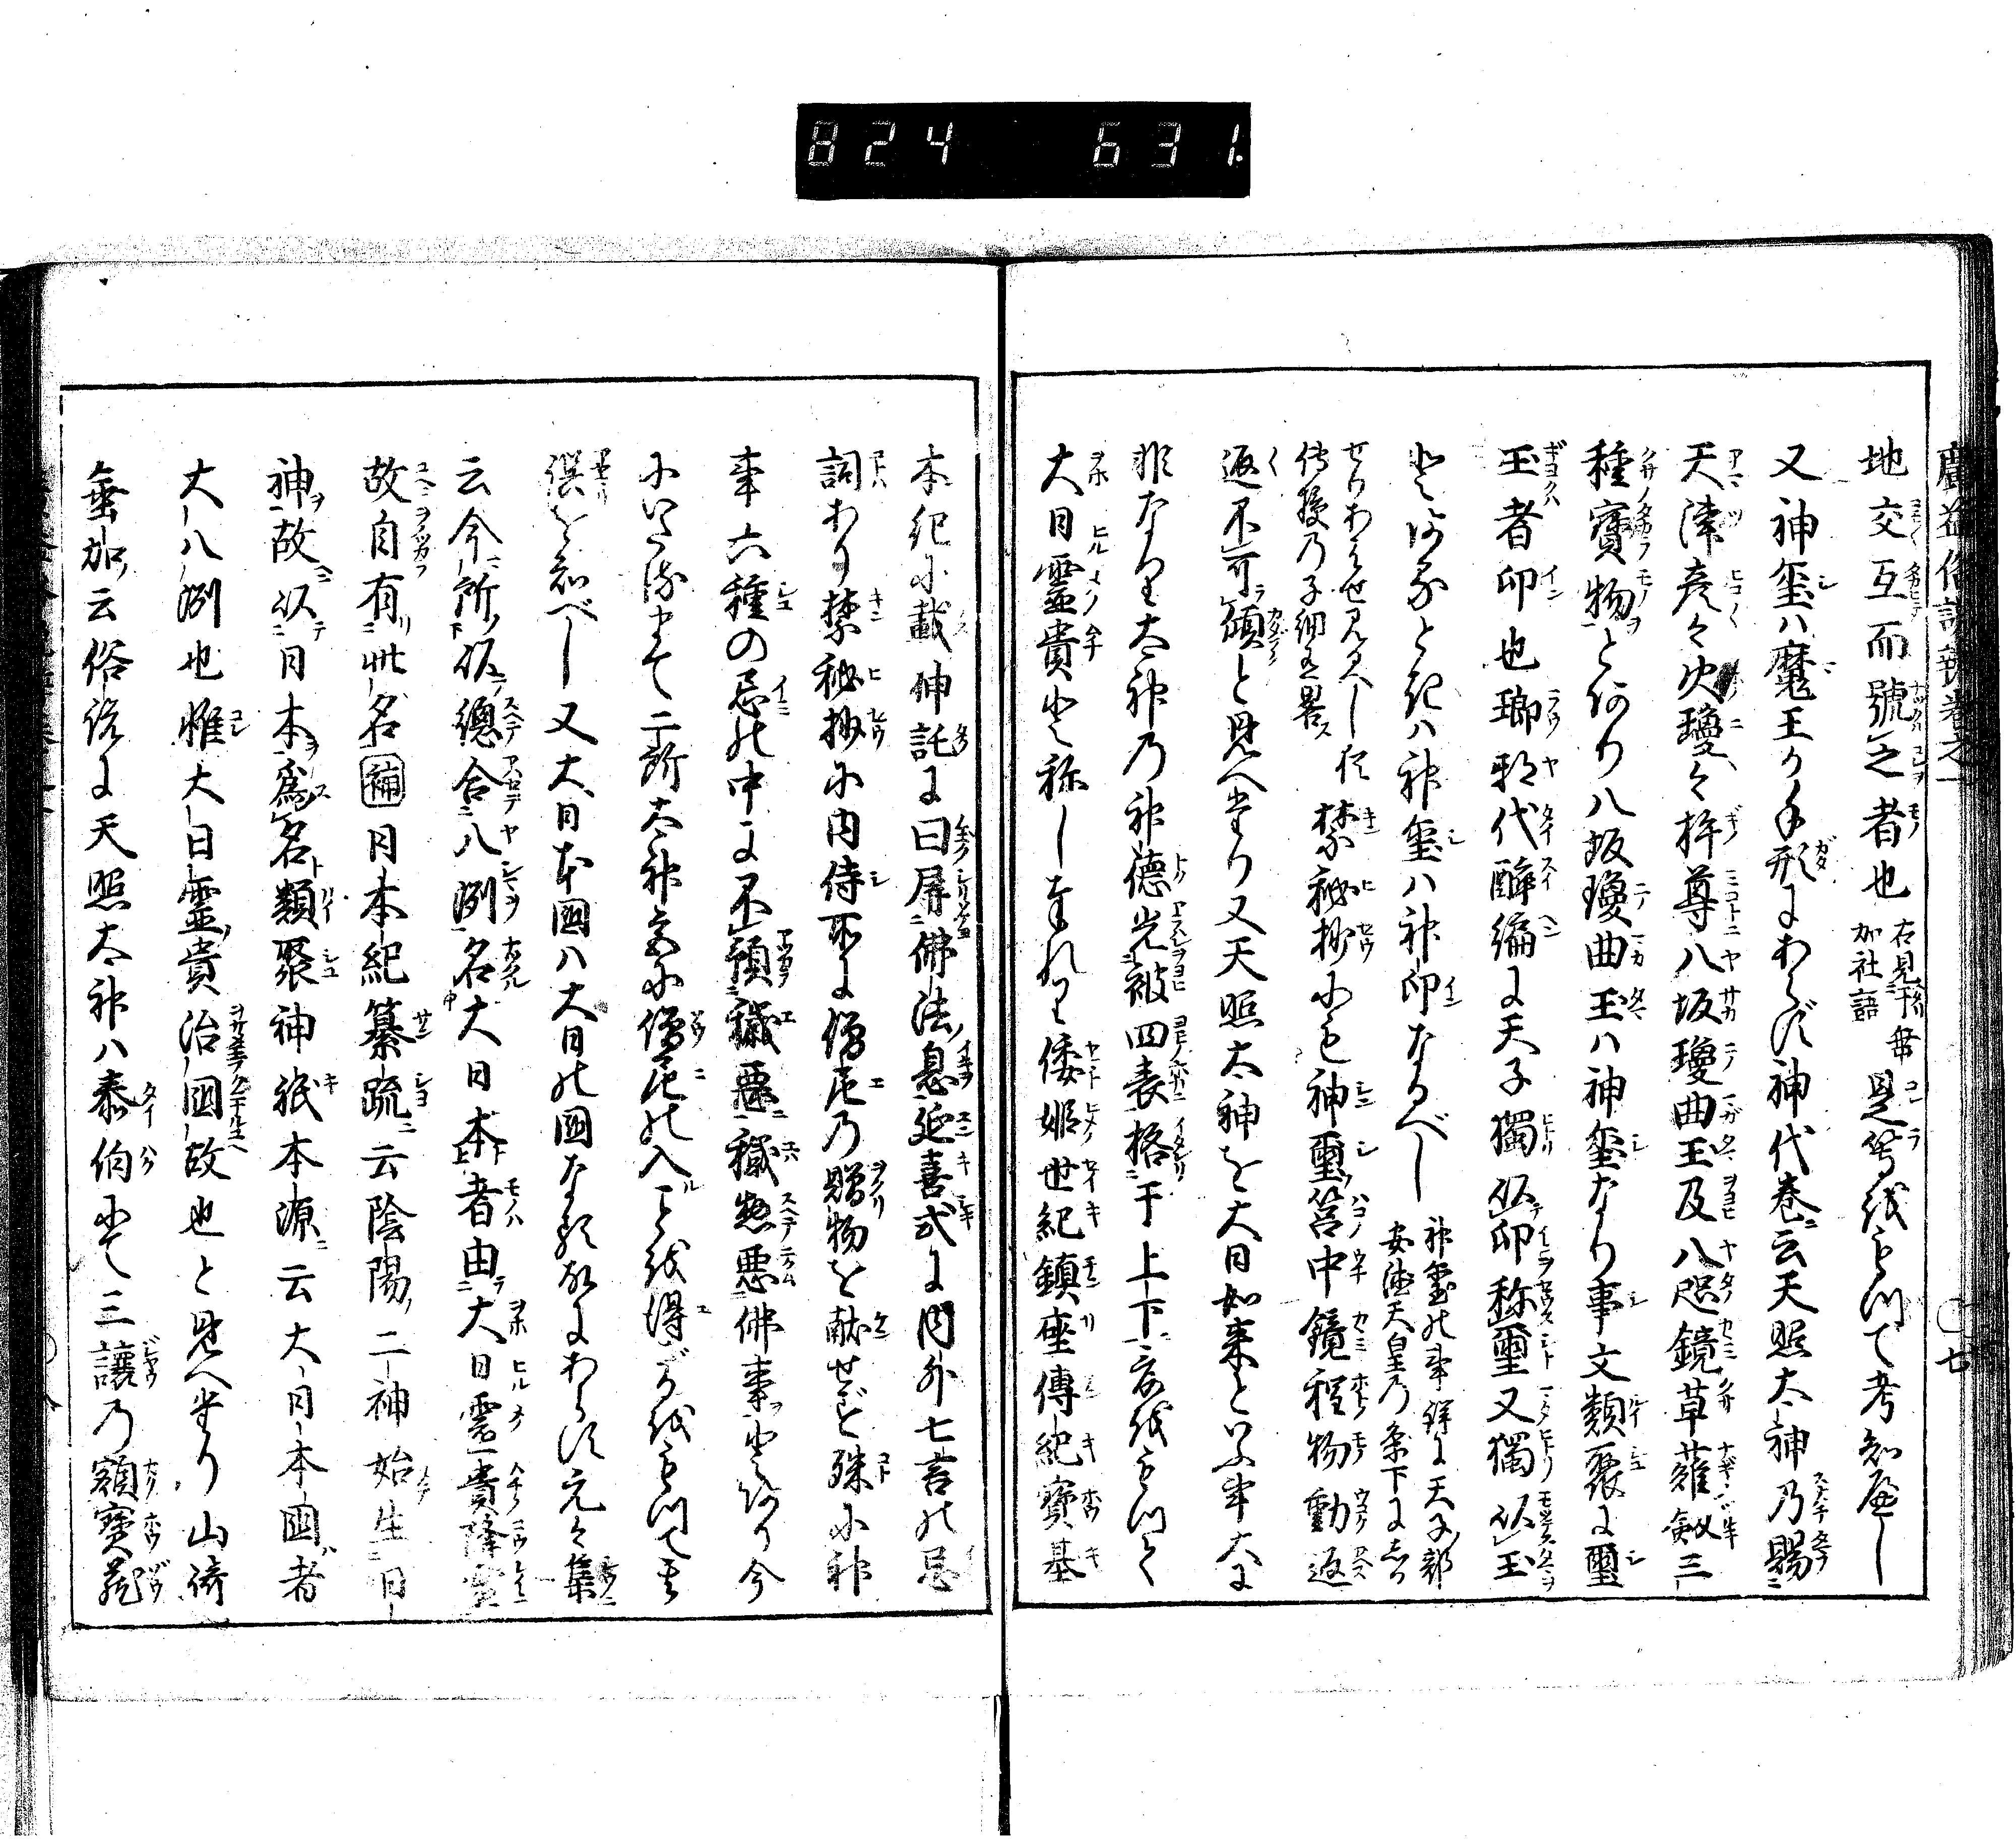 824 631
廣益俗說辨卷之一
七
地交互而號之者也 右見于垂加社語 是等を以て考知べし
又神璽ハ魔王の手形にあらず神代卷云天照太神乃賜
天津彥々火瓊々杵尊八坂瓊曲玉及八咫鏡草薙劒三
種寶物とあり八坂瓊曲玉ハ神璽なり事文類聚に璽
玉者印也瑯琊代醉編に天子獨以印称璽又獨以玉
とある時ハ神璽ハ神印なるべし 神璽の事詳に天子部安德天皇乃条下にしる
せりあはせ見るべし但傳授乃子細は略ス 禁秘抄にも神璽筥中鏡程物動返
返不可傾と見へたり又天照太神を大日如來といふ事大に
非なり太神乃神德光被四表格于上下
大日霊貴と称し奉れり倭姬世紀鎮座傳紀寶基
本紀に載神託に曰屏佛法息延喜式に内外七言の忌
詞あり禁秘抄に内侍所に僧尼乃贈物を献せず殊に神
事六種の忌の中に不預穢悪穢惣悪佛事とあり今
にいたるまで二所太神宮に僧尼の入ことを得ざるを以て其
誤を知べし又大日本國ハ大日の國なる故にあらず元々集
云今所以總合八洲名大日本者由大日霊貴降霊
故自有此名 補 日本紀纂疏云陰陽二神始生日
神故以日本爲名類聚神祇本源云大日本國者
大八洲也惟大日霊貴治國故也と見へたり山崎
垂加云俗說に天照太神ハ泰伯にて三讓乃額寶蔵